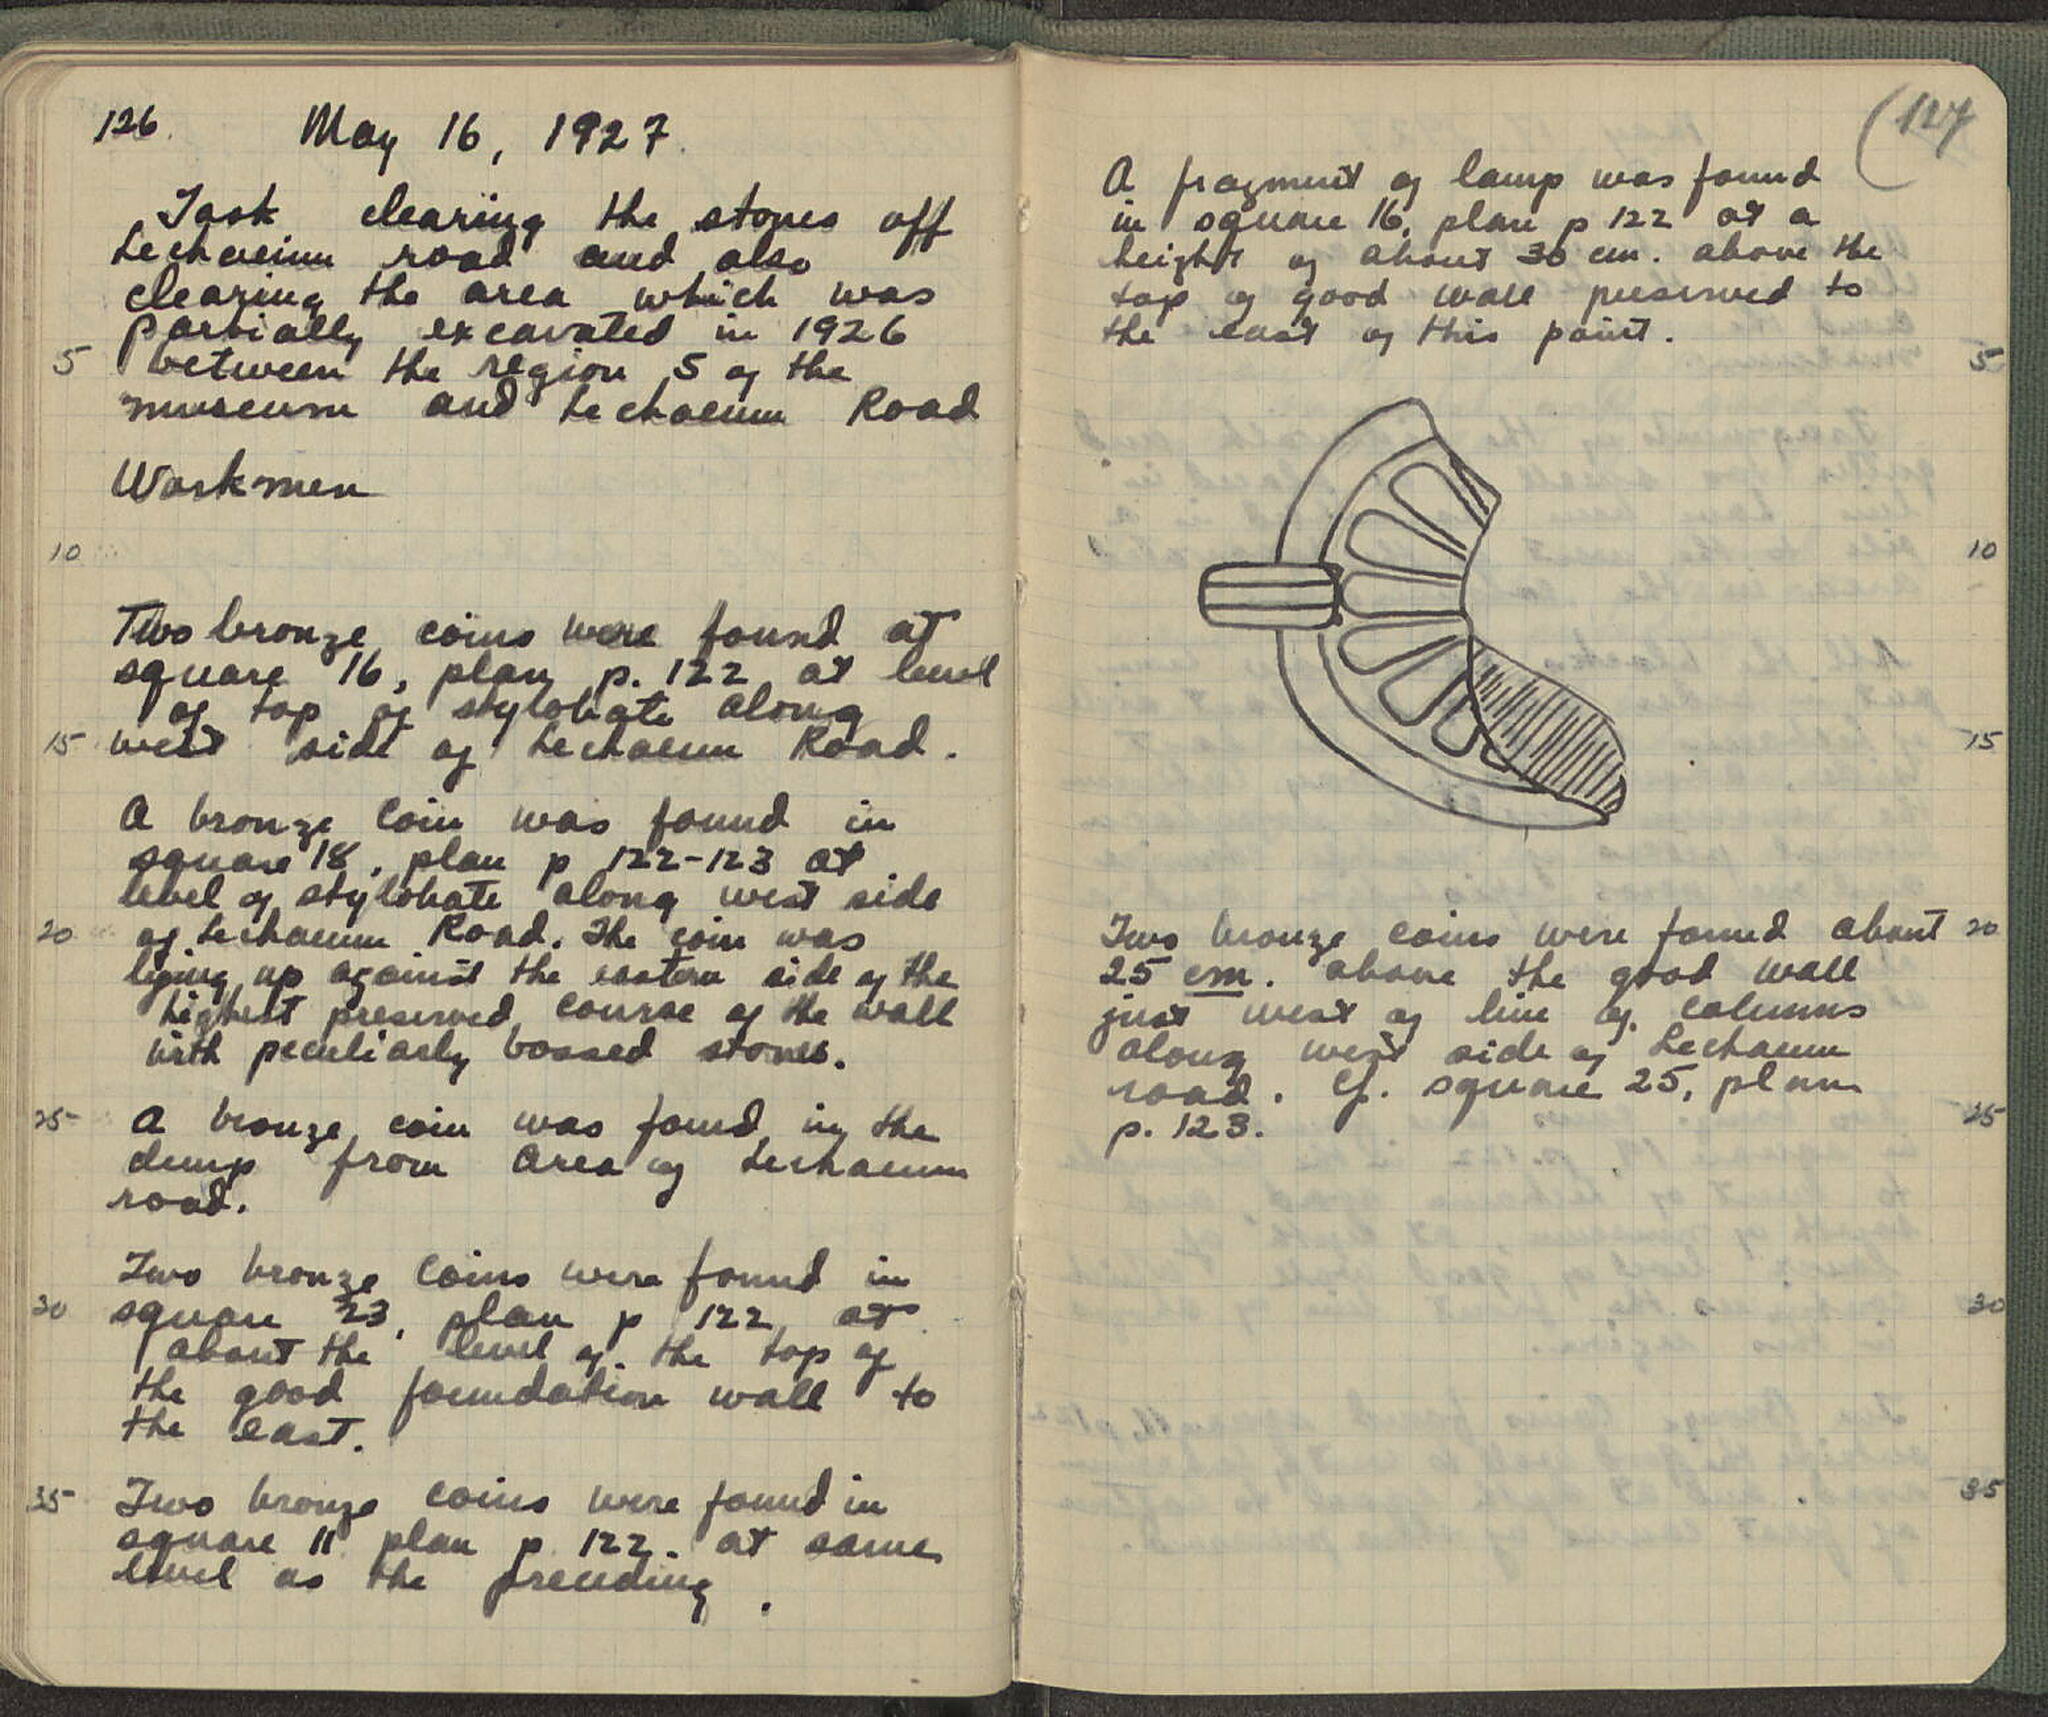 126. May 16, 1927.
Task clearing the stones off
Lechaeum road and also
clearing the area which was
partially excavated in 1926
5 between the region S of the
museum and Lechaeum Road
Workmen
10
Two bronze coins were found at
square 16, plan p. 122 at level
of top of stylobate along
15 west side of Lechaeum Road.
A bronze coin was found in
square 18, plan p 122-123 at
level of stylobate along west side
20 of Lechaeum Road. The coin was
lying up against the eastern side of the
highest preserved course of the wall
with peculiarly bossed stones.
25 A bronze coin was found in the
dump from area of Lechaeum
road.
Two bronze coins were found in
30 square 23, plan p 122 at
about the level of the top of
the good foundation wall to
the east.
35 Two bronze coins were found in
square 11 plan p. 122. at same
level as the preceding.
127
A fragment of lamp was found
in square 16, plan p 122 at a
height of about 30 cm. above the
top of good wall preserved to
the east of this point.
5
10
15
Two bronze coins were found about 20
25 cm. above the good wall
just west of line of columns
along west side of Lechaeum
road. Cf. square 25, plan
p. 123. 25
30
35